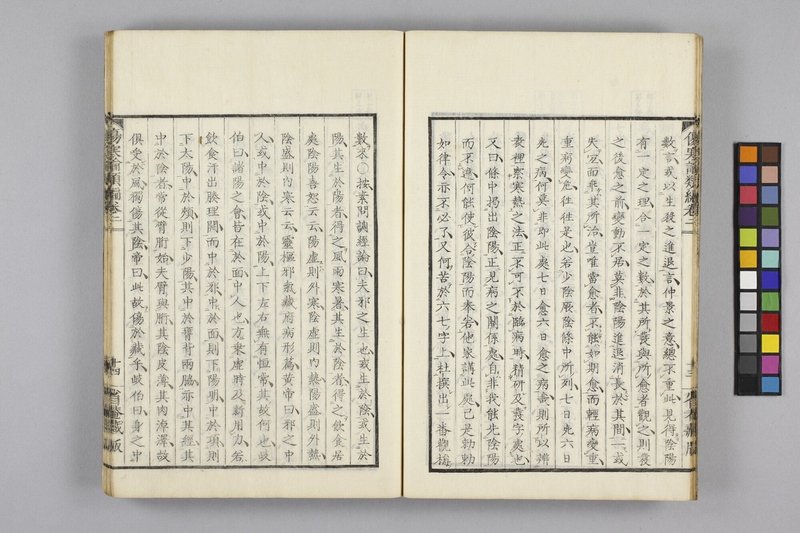 傷寒論類編卷二
數言或以生殺之進退言仲景之意總不重此見得陰陽
有一定之理合一定之數於其所發與所愈者觀之則發
之後愈之前變動不居莫非陰陽進退消長於其間一或
失宜而乖其所治豈唯當愈者不能如期愈而輕病變重
重病變危往往是也若少陰厥陰條中所列七日死六日
死之病何莫非即此處七日愈六日愈之病哉則所以辨
表裡察寒熱之法正不可不於臨病時精研及發字處也
又曰條中揭出陰陽正見病之關係處自非我能先陰陽
而不違何能使彼合陰陽而奉若他家講此處已是勅勅
如律令亦不必了又何苦於六七字上杜撰出一番觀梅
十三
數來○按素問調經論曰夫邪之生也或生於陰或生於
陽其生於陽者得之風雨寒暑其生於陰者得之飲食居
處陰陽喜怒云云陽虛則外寒陰虛則內熱陽盛則外熱
陰盛則內寒云云靈樞邪氣藏府病形篇黃帝曰邪之中
人或中於陰或中於陽上下左右無有恒常其故何也岐
伯曰諸陽之會皆在於面中人也方乘虛時及新用力若
飲食汗出腠理開而中於邪中於面則下陽明中於項則
下太陽中於頰則下少陽其中於膺背兩脇亦中其經其
中於陰者常從臂胻始夫臂與胻其陰皮薄其肉淖澤故
俱受於風獨傷其陰帝曰此故傷於藏乎岐伯曰身之中
傷寒論類編卷二
十四
藏版